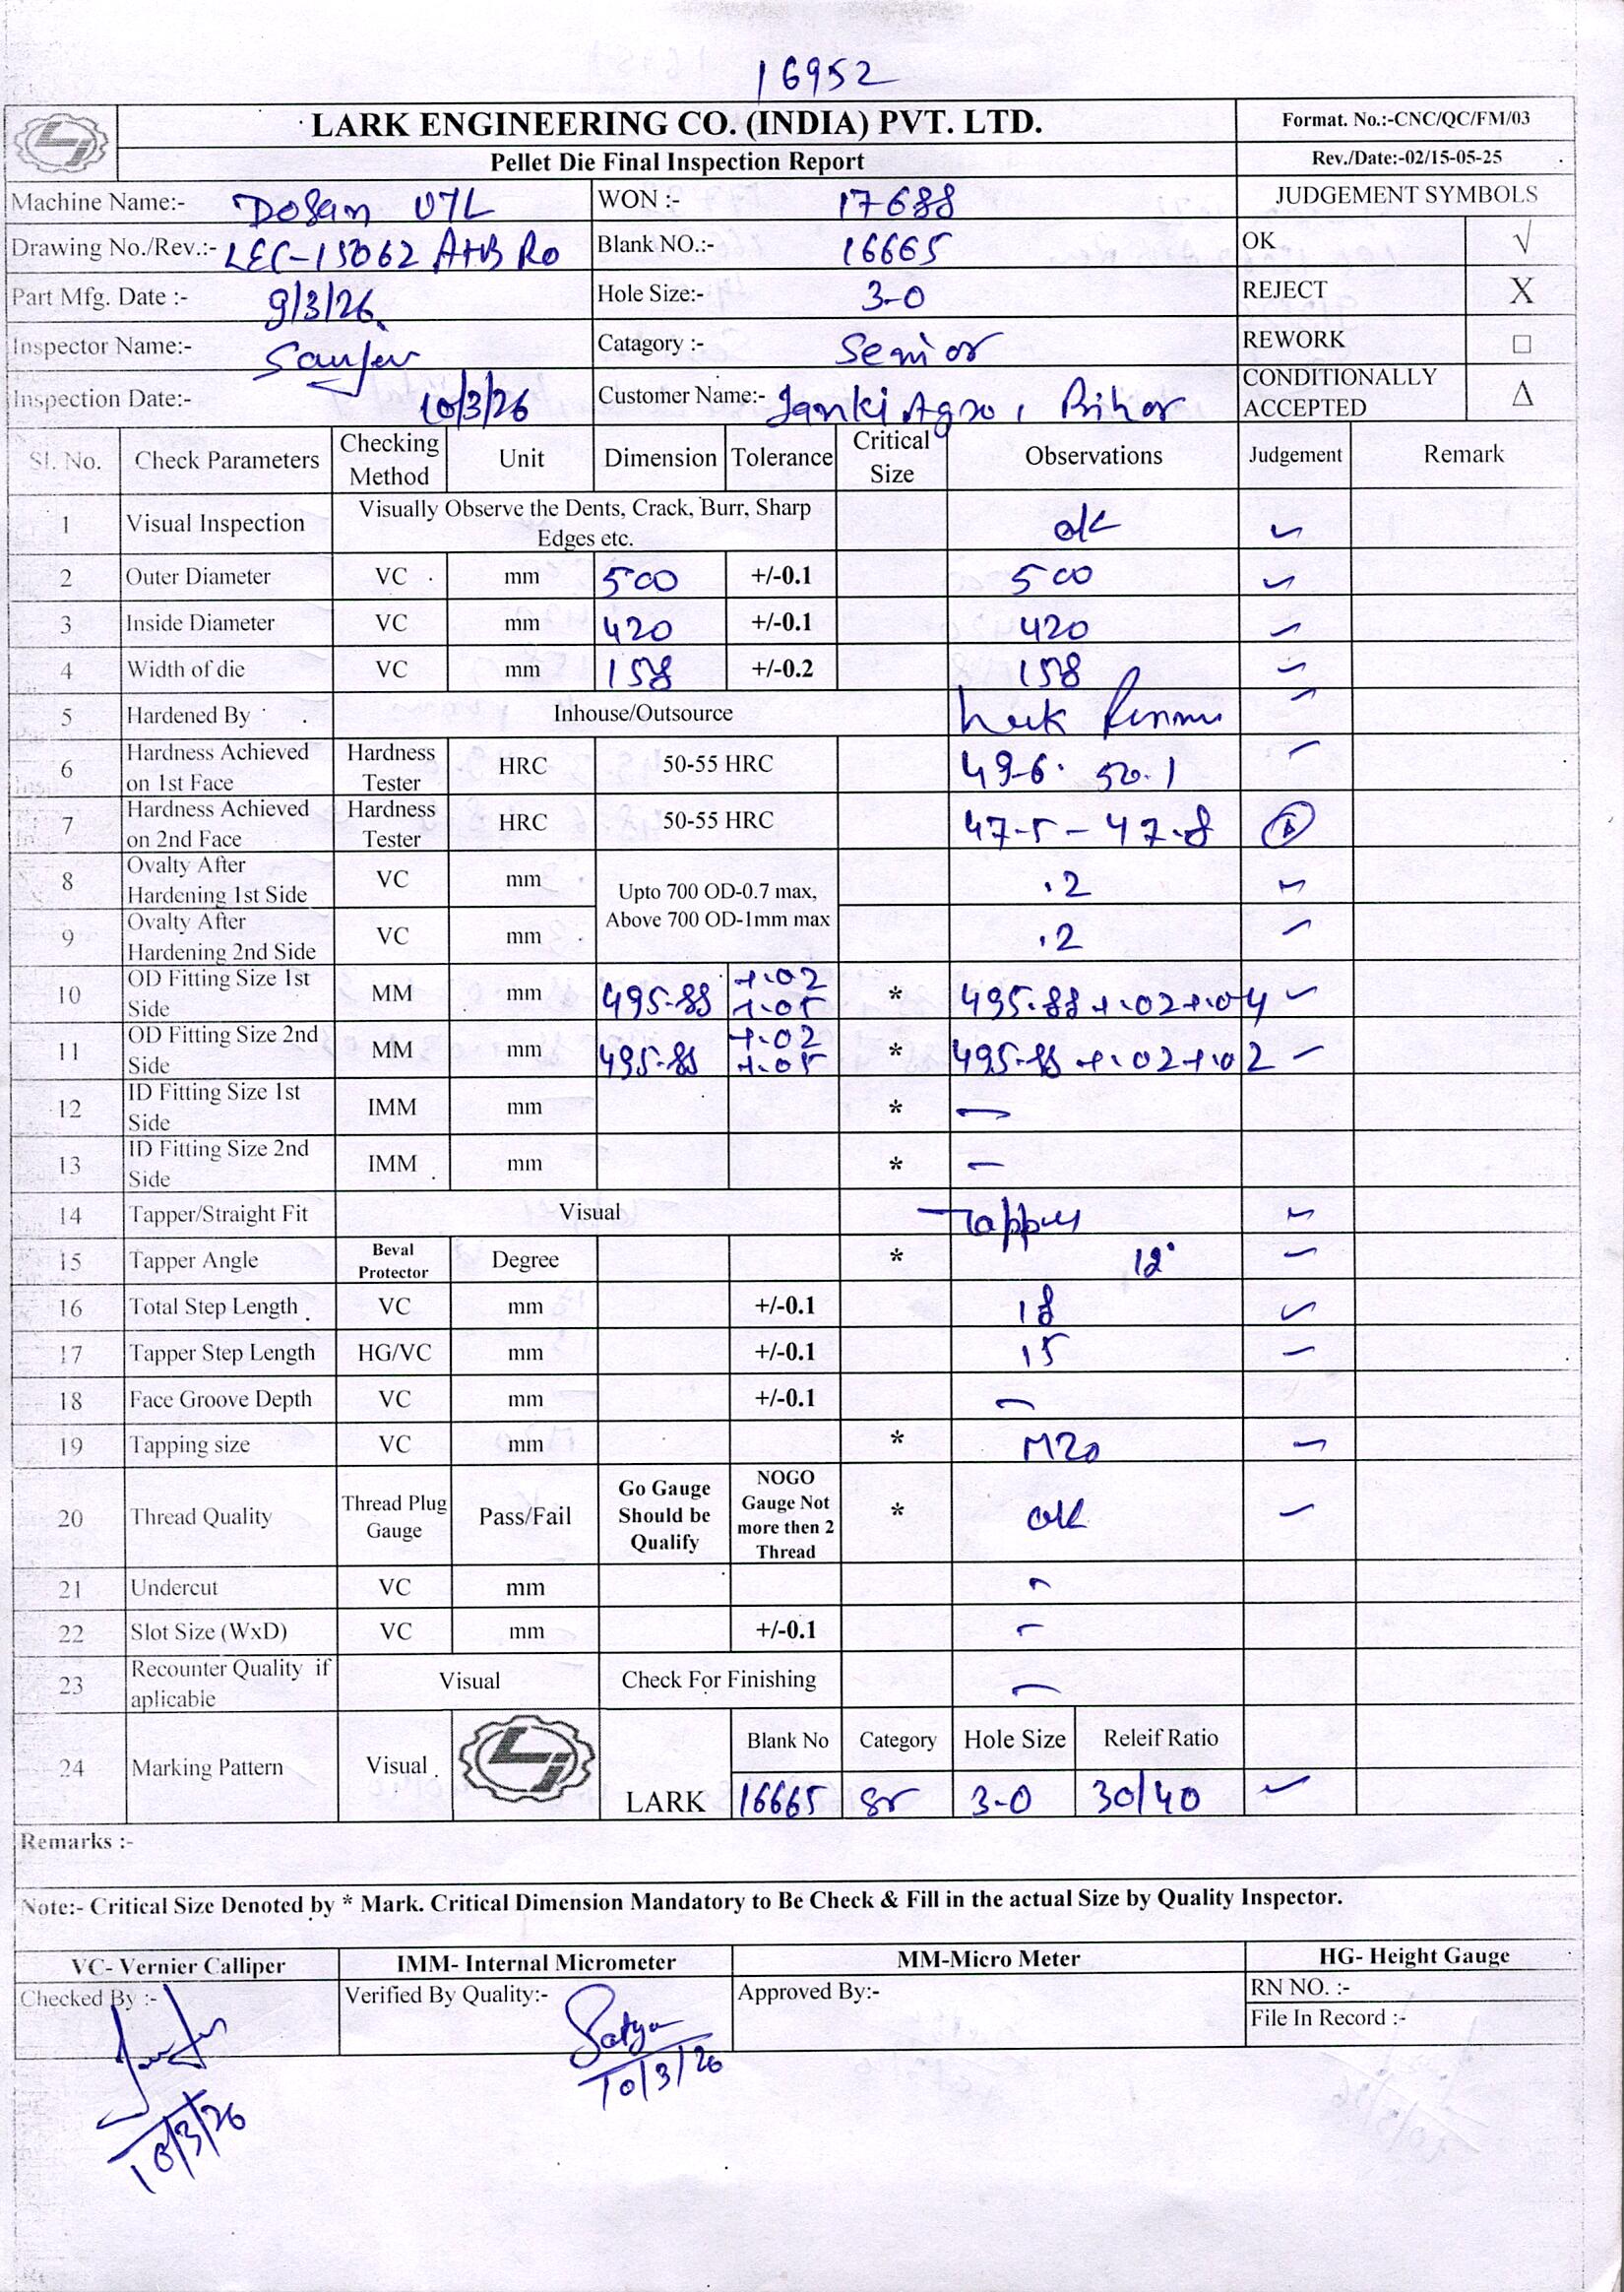 16952
LARK ENGINEERING CO. (INDIA) PVT. LTD.
Format. No.:-CNC/QC/FM/03
Pellet Die Final Inspection Report
Rev./Date:-02/15-05-25
Machine Name:- Dosan UTL WON :- 17688 JUDGEMENT SYMBOLS
Drawing No./Rev.:- LEC-15062 A+B R0 Blank NO.:- 16665 OK √
Part Mfg. Date :- 9/3/26 Hole Size:- 3-0 REJECT X
Inspector Name:- Sanjev Catagory :- Senior REWORK □
Inspection Date:- 10/3/26 Customer Name:- Janki Agro, Bihar CONDITIONALLY ACCEPTED Δ
Sl. No. Check Parameters Checking Method Unit Dimension Tolerance Critical Size Observations Judgement Remark
1 Visual Inspection Visually Observe the Dents, Crack, Burr, Sharp Edges etc. ok ✓
2 Outer Diameter VC mm 500 +/-0.1 500 ✓
3 Inside Diameter VC mm 420 +/-0.1 420 ✓
4 Width of die VC mm 158 +/-0.2 158 ✓
5 Hardened By Inhouse/Outsource ✓
6 Hardness Achieved on 1st Face Hardness Tester HRC 50-55 HRC 49-6. 50.1 ✓
7 Hardness Achieved on 2nd Face Hardness Tester HRC 50-55 HRC 47-5 - 47-8
8 Ovalty After Hardening 1st Side VC mm Upto 700 OD-0.7 max, Above 700 OD-1mm max .2 ✓
9 Ovalty After Hardening 2nd Side VC mm .2 ✓
10 OD Fitting Size 1st Side MM mm 495-88 +.02 +.05 * 495.88 +.02+.04 ✓
11 OD Fitting Size 2nd Side MM mm 495-88 +.02 +.05 * 495-88 +.02+.02 ✓
12 ID Fitting Size 1st Side IMM mm * —
13 ID Fitting Size 2nd Side IMM mm * —
14 Tapper/Straight Fit Visual Tapper ✓
15 Tapper Angle Beval Protector Degree * 12° ✓
16 Total Step Length VC mm +/-0.1 18 ✓
17 Tapper Step Length HG/VC mm +/-0.1 15 ✓
18 Face Groove Depth VC mm +/-0.1 —
19 Tapping size VC mm * M20 ✓
20 Thread Quality Thread Plug Gauge Pass/Fail Go Gauge Should be Qualify NOGO Gauge Not more then 2 Thread * ok ✓
21 Undercut VC mm —
22 Slot Size (WxD) VC mm +/-0.1 —
23 Recounter Quality if aplicable Visual Check For Finishing —
24 Marking Pattern Visual LARK Blank No Category Hole Size Releif Ratio
16665 Sr 3-0 30/40 ✓
Remarks :-
Note:- Critical Size Denoted by * Mark. Critical Dimension Mandatory to Be Check & Fill in the actual Size by Quality Inspector.
VC- Vernier Calliper IMM- Internal Micrometer MM-Micro Meter HG- Height Gauge
Checked By :- Verified By Quality:- Satya Approved By:- RN NO. :-
File In Record :-
10/3/26
10/3/26